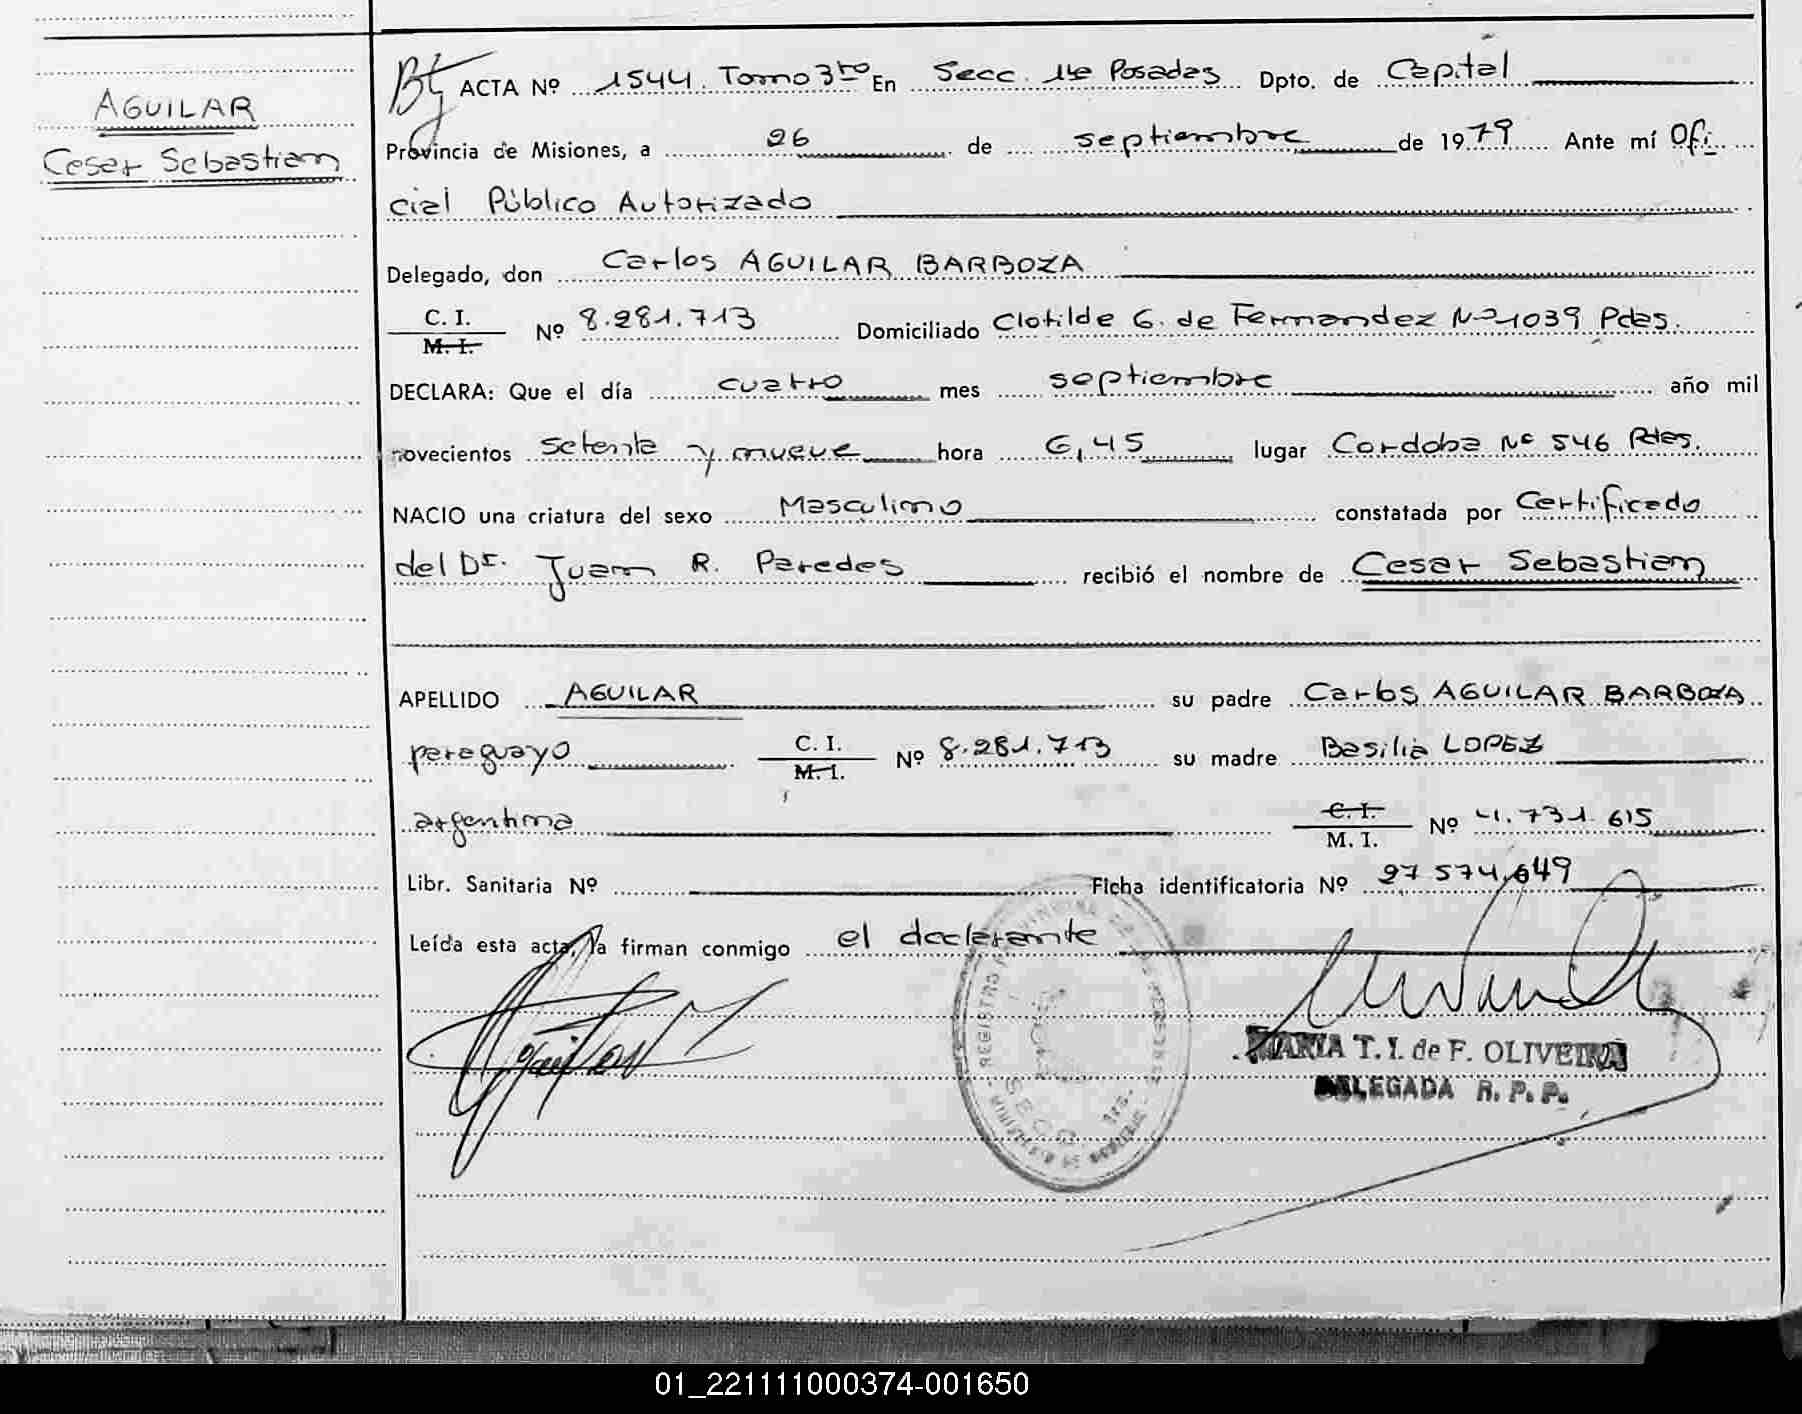 AGUILAR
Cesar Sebastian
ACTA Nº 1544. Tomo 3ro En Secc. 1ra Posadas Dpto. de Capital
Provincia de Misiones, a 26 de septiembre de 1979 Ante mí Ofi
cial Público Autorizado
Delegado, don Carlos AGUILAR BARBOZA
C. I.
M. I. Nº 8.281.713 Domiciliado Clotilde G. de Fernandez Nº 1039 Pdas.
DECLARA: Que el día cuatro mes septiembre año mil
novecientos setenta y nueve hora 6,45 lugar Cordoba Nº 546 Pdas.
NACIO una criatura del sexo Masculino constatada por Certificado
del Dr. Juan R. Paredes recibió el nombre de Cesar Sebastian
APELLIDO AGUILAR su padre Carlos AGUILAR BARBOZA
paraguayo C. I. M. I. Nº 8.281.713 su madre Basilia LOPEZ
argentina C. I. M. I. Nº 4.731.615
Libr. Sanitaria Nº Ficha identificatoria Nº 27 574.649
Leída esta acta, la firman conmigo el declarante
MARIA T. I. de F. OLIVEIRA
DELEGADA R. P. P.
01_221111000374-001650